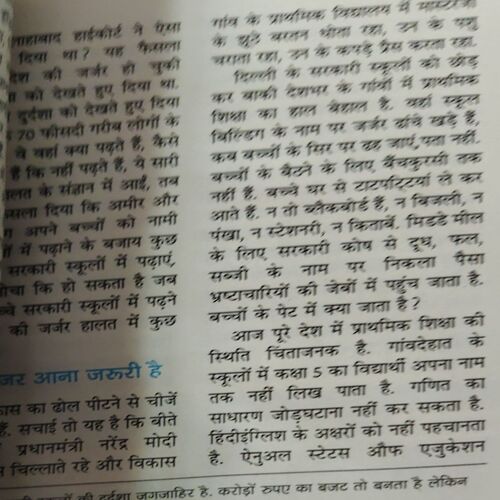 लाहाबाद हाईकोर्ट ने ऐसा
दिया था? यह फैसला
देश की जर्जर हो चुकी
को देखते हुए दिया था.
दुर्दशा को देखते हुए दिया
70 फीसदी गरीब लोगों के
वे वहां क्या पढ़ते हैं, कैसे
हैं कि नहीं पढ़ते हैं, ये सारी
हालत के संज्ञान में आईं, तब
फैसला दिया कि अमीर और
अपने बच्चों को नामी
में पढ़ाने के बजाय कुछ
सरकारी स्कूलों में पढ़ाएं.
सोचा कि हो सकता है जब
बच्चे सरकारी स्कूलों में पढ़ने
की जर्जर हालत में कुछ
नजर आना जरूरी है
का ढोल पीटने से चीजें
हैं. सचाई तो यह है कि बीते
प्रधानमंत्री नरेंद्र मोदी
चिल्लाते रहे और विकास
गांव के प्राथमिक विद्यालय में मास्टरजी
के झूठे बरतन धोता रहा, उन के पशु
चराता रहा, उन के कपड़े प्रैस करता रहा.
दिल्ली के सरकारी स्कूलों को छोड़
कर बाकी देशभर के गांवों में प्राथमिक
शिक्षा का हाल बेहाल है. वहां स्कूल
बिल्डिंग के नाम पर जर्जर ढांचे खड़े हैं,
कब बच्चों के सिर पर ढह जाएं, पता नहीं.
बच्चों के बैठने के लिए बैंचकुरसी तक
नहीं हैं. बच्चे घर से टाटपट्टियां ले कर
आते हैं. न तो ब्लैकबोर्ड हैं, न बिजली, न
पंखा, न स्टेशनरी, न किताबें. मिडडे मील
के लिए सरकारी कोष से दूध, फल,
सब्जी के नाम पर निकला पैसा
भ्रष्टाचारियों की जेबों में पहुंच जाता है.
बच्चों के पेट में क्या जाता है?
आज पूरे देश में प्राथमिक शिक्षा की
स्थिति चिंताजनक है. गांवदेहात के
स्कूलों में कक्षा 5 का विद्यार्थी अपना नाम
तक नहीं लिख पाता है. गणित का
साधारण जोड़घटाना नहीं कर सकता है.
हिंदीइंग्लिश के अक्षरों को नहीं पहचानता
है. ऐनुअल स्टेटस औफ एजुकेशन
की दुर्दशा जगजाहिर है. करोड़ों रुपए का बजट तो बनता है लेकिन